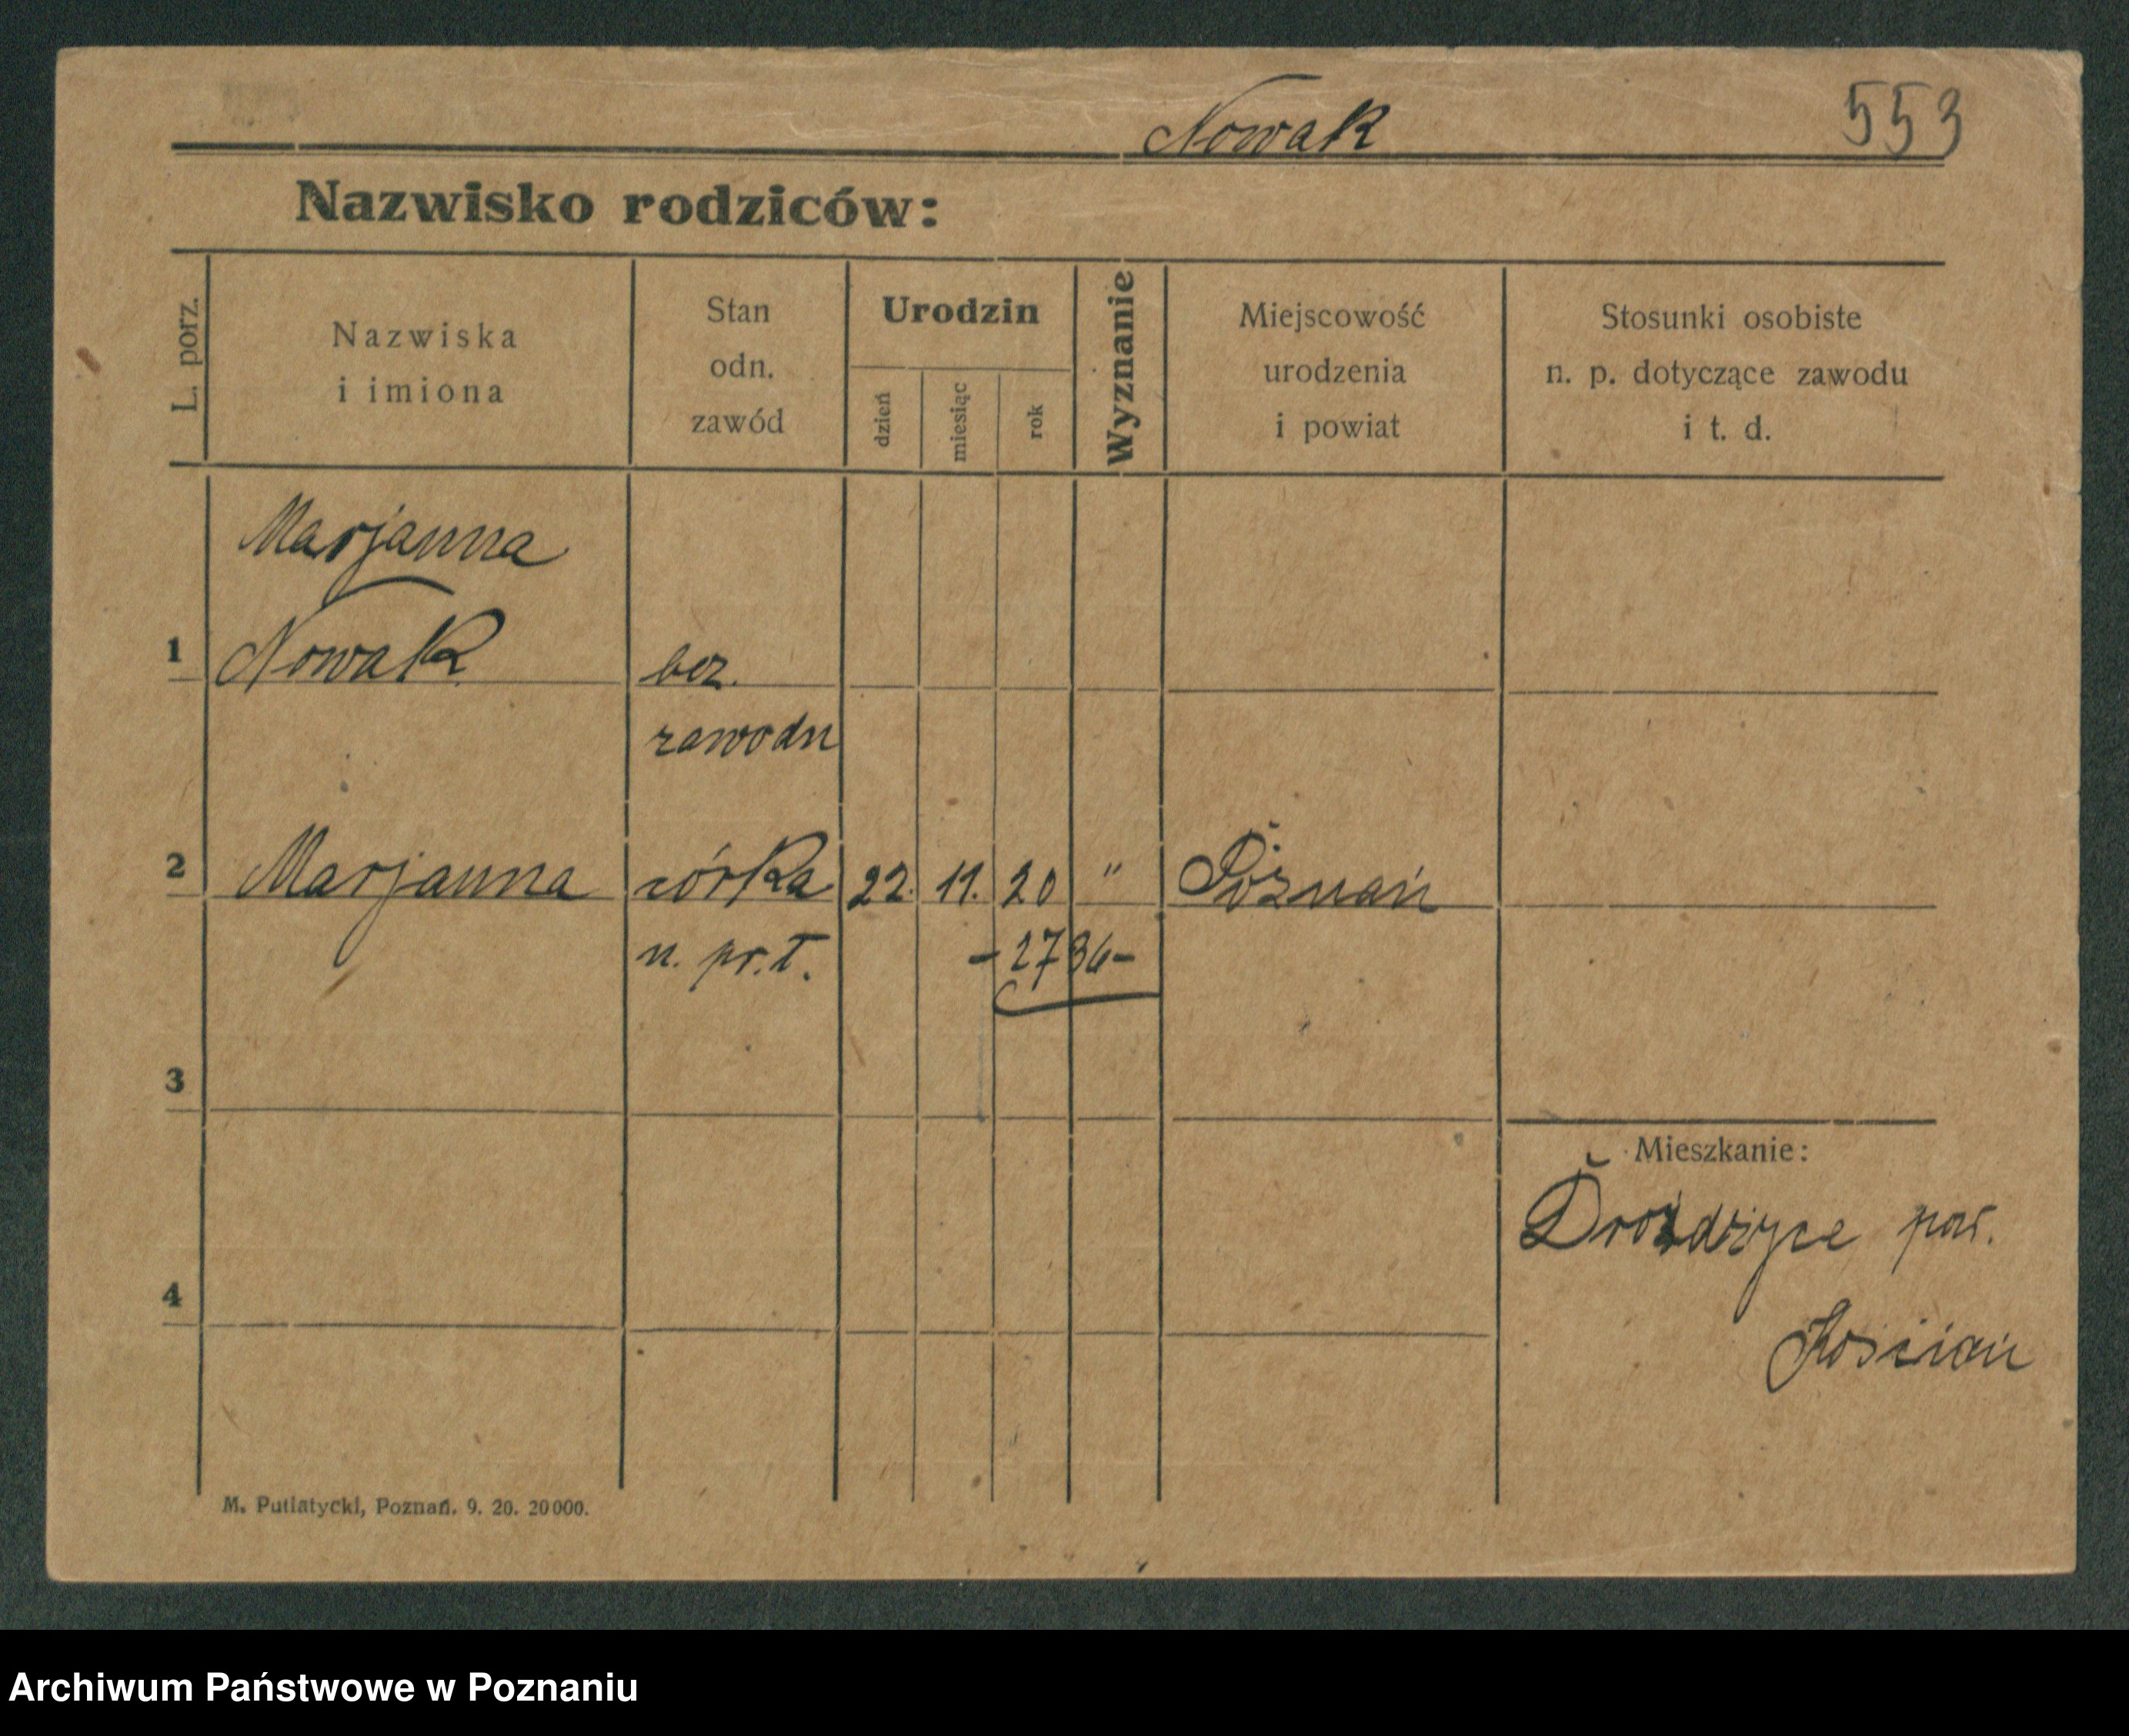 Nowak 553
Nazwisko rodziców:
L. porz.
Nazwiska
i imiona
Stan
odn.
zawód
Urodzin
dzień
miesiąc
rok
Wyznanie
Miejscowość
urodzenia
i powiat
Stosunki osobiste
n. p. dotyczące zawodu
i t. d.
Marjanna
1 Nowak bez.
zawodu
2 Marjanna córka 22. 11. 20 " Poznań
n. pr. t. - 2736 -
3
Mieszkanie:
Drożdżyce pow.
4
Kościan
M. Putiatycki, Poznań. 9. 20. 20000.
Archiwum Państwowe w Poznaniu